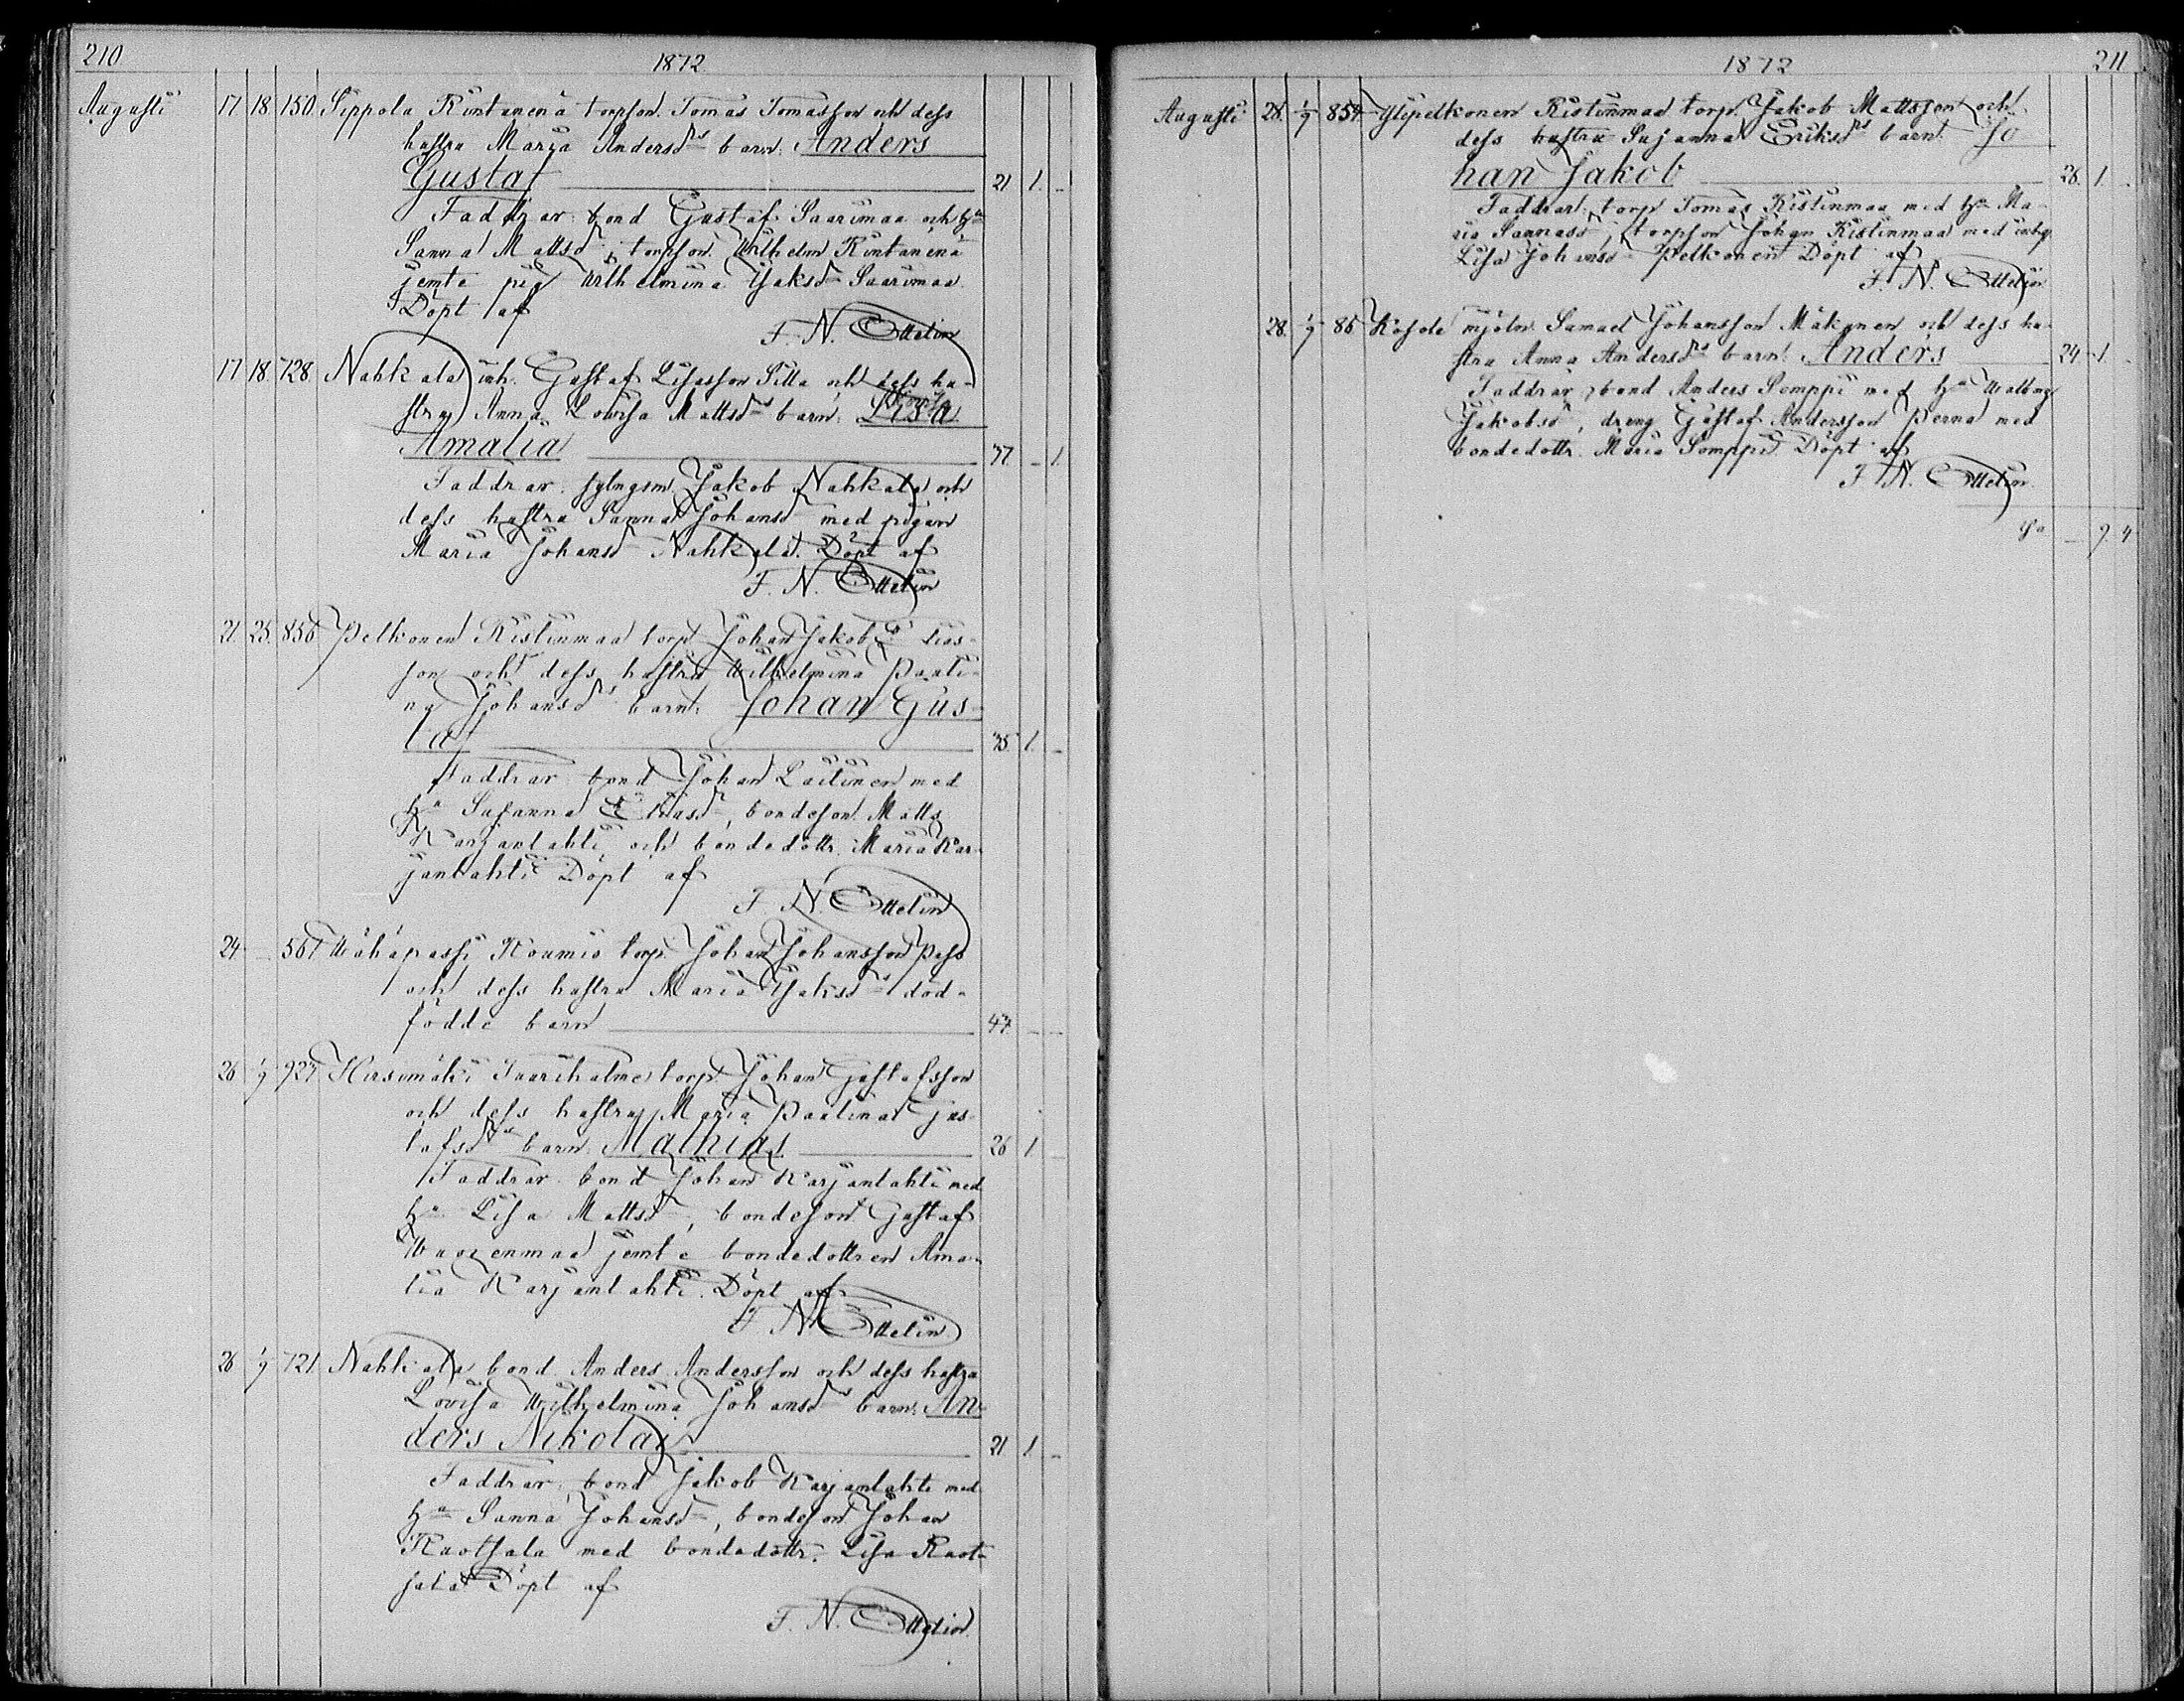 210
1872
Augusti 17. 18. 150. Sippola Rintanenä torpson Tomas Tomasson och dess
hustru Maria Andersdrs barn: Anders
Gustaf 21 1. -
Faddrar: bond Gustaf Saarimaa och hu
Sanna Mattsdr, torpson Wilhelm Rintanenä
jemte pig Wilhelmina Jaksdr Saarimaa
Döpt af
F. N. Ottelin
17 18. 728. Nahkala inh. Gustaf Lisasson Silla och dess hu-
stru Anna Lovisa Mattsdrs barn: Lisa
Amalia 37. - 1.
Faddrar: Jakob Nahkala och
dess hustru Sanna Johansdr med pigan
Maria Johansdr Nahkala. Döpt af
F. N. Ottelin
21. 25. 856 Pelkonen Ristinmaa torp. Johan Jakob
son och dess hustru Wilhelmina Pauli-
na Johansdrs barn: Johan Gus-
taf 35. 1. -
Faddrar: bond Johan Laitinen med
hu Susanna Eliasdr, bondeson Matts
Karjanlahti och bondedottr. Maria Kar-
janlahti Döpt af
F. N. Ottelin
24. - 567 Wähäpassi Koumio torp. Johan Johansson Pass
och dess hustru Maria Jaksdrs död-
födde barn 47. - -
26 1/9 927 Hirsimäki Saarihalme torp. Johan Gustafsson
och dess hustru Maria Paulina Gus-
tafsdrs barn: Mathias 26 1 -
Faddrar: bond Johan Karjanlahti med
hu Lisa Mattsdr, bondeson Gustaf
Wuorenmaa jemte bondedottren Ama-
lia Karjanlahti. Döpt af
F. N. Ottelin
26 1/9 721. Nahkala bond Anders Andersson och dess hustru
Lovisa Wilhelmina Johansdrs barn: An-
ders Nikolai 21. 1. -
Faddrar: bond Jakob Karjanlahti med
hu Sanna Johansdr, bondeson Johan
Ruotsala med bondedottr. Lisa Ruot-
sala Döpt af
F. N. Ottelin.
1872
211
Augusti 28. 1/9 854. Ylipelkonen Ristinmaa torp. Jakob Mattsson och
dess hustru Susanna Eriksdrs barn: Jo
han Jakob 28. 1. -
Faddrar: torp. Tomas Ristinmaa med hu Ma-
ria, torpson Johan Ristinmaa med inhy.
Lisa Johansdr Pelkonen Döpt af
F. N. Ottelin
28. 1/9 86 Kosola mjöln. Samuel Johansson Mäkinen och dess hu-
stru Anna Andersdrs barn: Anders 24. 1. -
Faddrar: bond Anders Somppi med hu Walborg
Jakobsdr, dreng Gustaf Andersson Perna med
bondedottr. Maria Somppi Döpt af
F. N. Ottelin.
Sa - 9 4